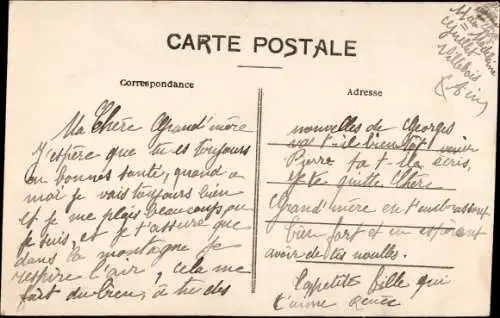 CARTE POSTALE
Correspondance
Ma Chère Grand'mère
J'espère que tu es toujours
en bonnes santé, quand a
moi je vais toujours bien
et je me plais beaucoup ou
je suis, et je t'assure que
dans la montagne je
respire l'air, cela me
fait du bien, à tu des
Adresse
nouvelles de Georges
va t-il bientôt venir
Pierre t'a t-il écris,
Je te quitte Chère
Grand'mère en t'embrassant
bien fort et en espérant
avoir de tes noulles.
Ta petite fille qui
t'aime Renée
Madeleine
Guillet
Villebois
(Ain)